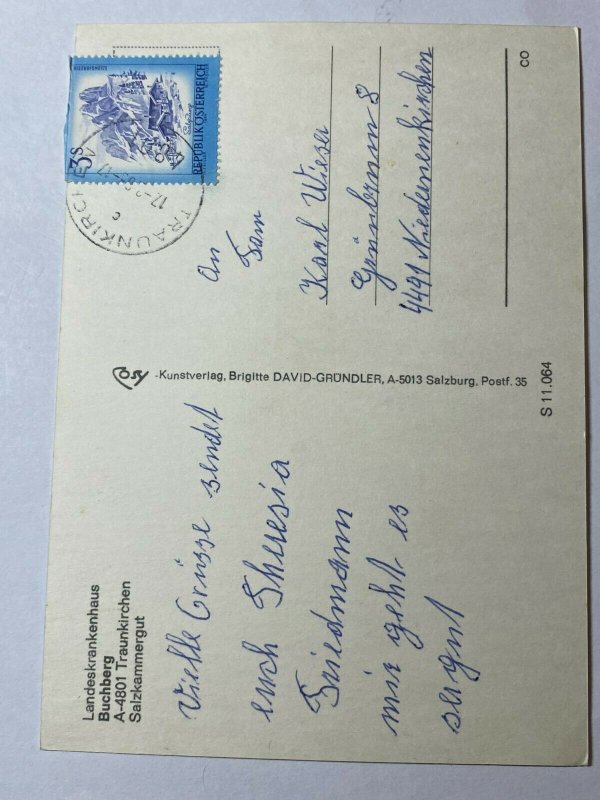 Landeskrankenhaus
Buchberg
A-4801 Traunkirchen
Salzkammergut
Vielle Grüsse sendet
euch Theresia
Friedmann
mir geht es
ser gut
COSY -Kunstverlag, Brigitte DAVID-GRÜNDLER, A-5013 Salzburg, Postf. 35
3S
REPUBLIK ÖSTERREICH
TRAUNKIRCHEN
An
Fam
Karl Wieser
4491 Niederneukirchen
S 11.064
CO